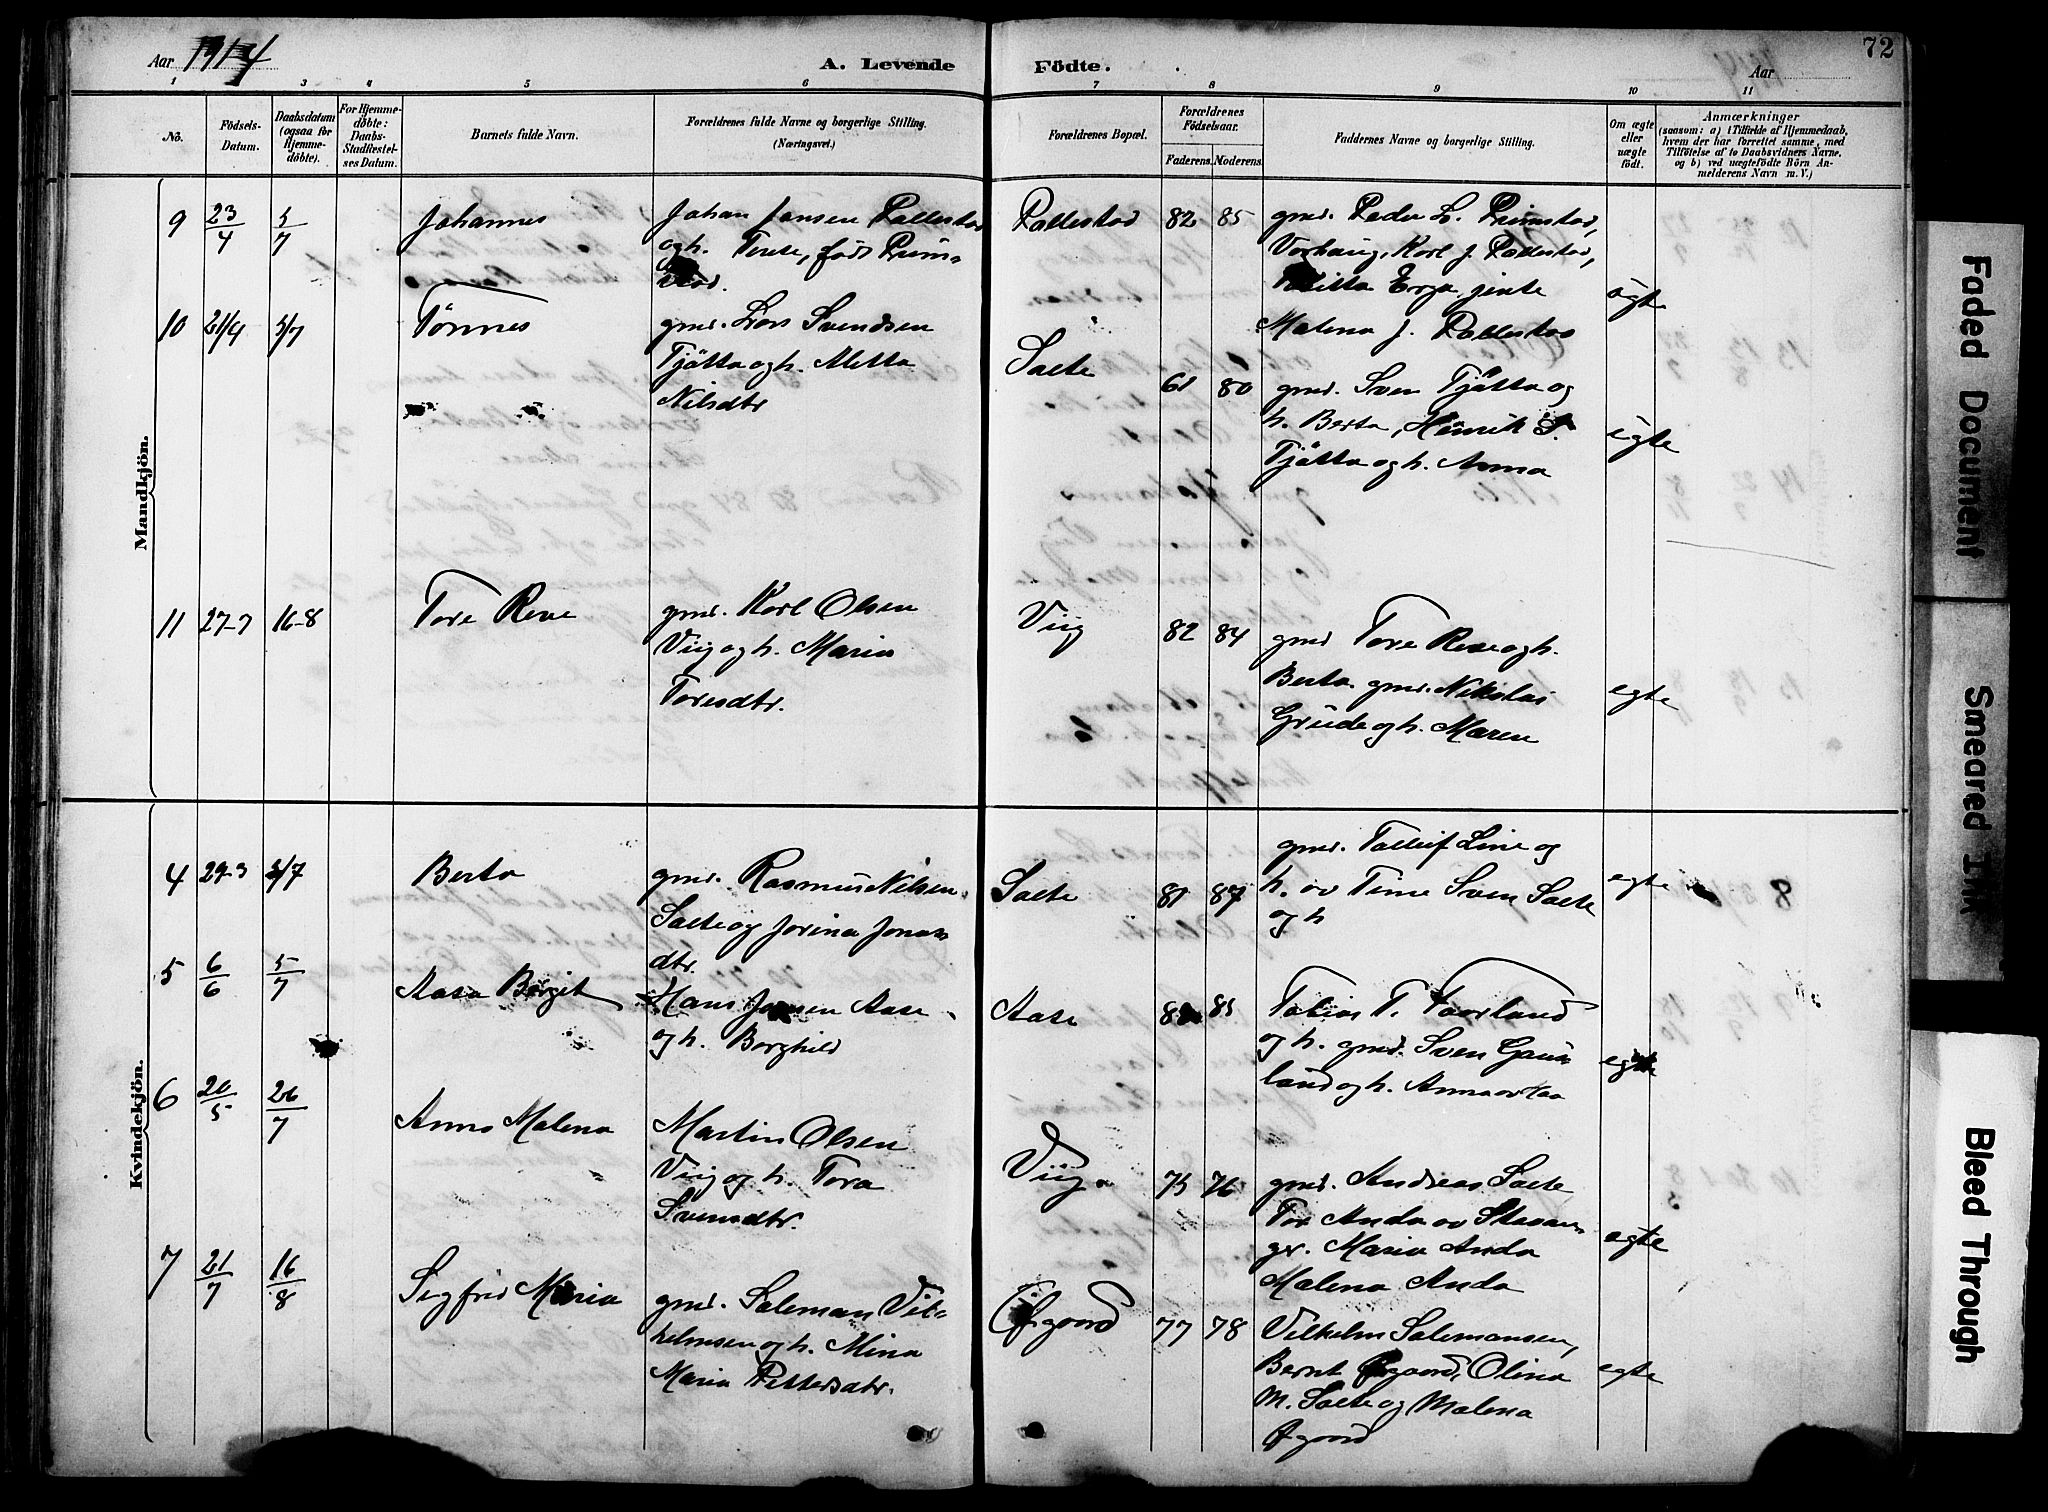 Aar 1914
A. Levende Födte.
Aar
72
1 3 4 5 6 7 8 9 10 11
No.
Födsels-Datum.
Daabsdatum (ogsaa for Hjemme-döbte).
For Hjemme-döbte: Daabs-Stadfæstel-ses Datum.
Barnets fulde Navn.
Forældrenes fulde Navne og borgerlige Stilling.
(Næringsvei.)
Forældrenes Bopæl.
Forældrenes Födselsaar.
Faderens. Moderens.
Faddernes Navne og borgerlige Stilling.
Om ægte eller uægte födt.
Anmærkninger
(saasom: a) i Tilfælde af Hjemmedaab,
hvem der har forrettet samme, med
Tilföielse af to Daabsvidners Navne,
og b) ved uægtefödte Börn An-
melderens Navn m. V.)
Mandkjön.
9 23/4 5/7 Johannes
Johan Jansen Pallestad
og h. Tense, født Prim-
stad.
Pallestad 82 85
gmd. Peder L. Primstad,
Vorhaug, Karl J. Pallestad,
Erga, jente
Malena J. Pallestad
egte
10 21/4 5/7 Tønnes
gmd. Lars Svendsen
Tjåtta og h. Metta
Nilsdtr
Salte 61 80
gmd. Sven Tjåtta og
h. Berta, Henrik S.
Tjåtta og h. Anna
egte
11 27-7 16-8 Tore Reve
gmd. Karl Olsen
Viig og h. Maria
Toresdtr.
Viig 82 84
gmd Tore Reve og h.
Berta gmd. Nikolai
Grude og h. Maren
egte
Kvindekjön.
4 29-3 5/7 Berta
gmd. Rasmus Nilsen
Salte og Jorina Jonas
dtr.
Salte 81 87
gmd. Tolleif Line og
h. av Time Sven Salte
og h
egte
5 6/6 5/7 Aasa Borgit
Hans Jansen Aase
og h. Borghild
Aase 85
Tobias T. Taarland
og h. gmd. Sven Gaus
land og h. Anna
egte
6 20/5 26/7 Anna Malena
Martin Olsen
Viig og h. Tora
Svensdtr.
Viig. 75 76
gmd. Andreas Salte
Tor Anda av Stavan-
ger. Maria Anda
Malena Anda
egte
7 21/7 16/8 Sigfrid Maria
gmd. Saleman Vil-
helmsen og h. Mina
Maria Pettersdtr.
77 78
Vilhelm Salemansen,
Bernt Olina
M. Salte og Malena
egte
Faded Document
Smeared Ink
Bleed Through